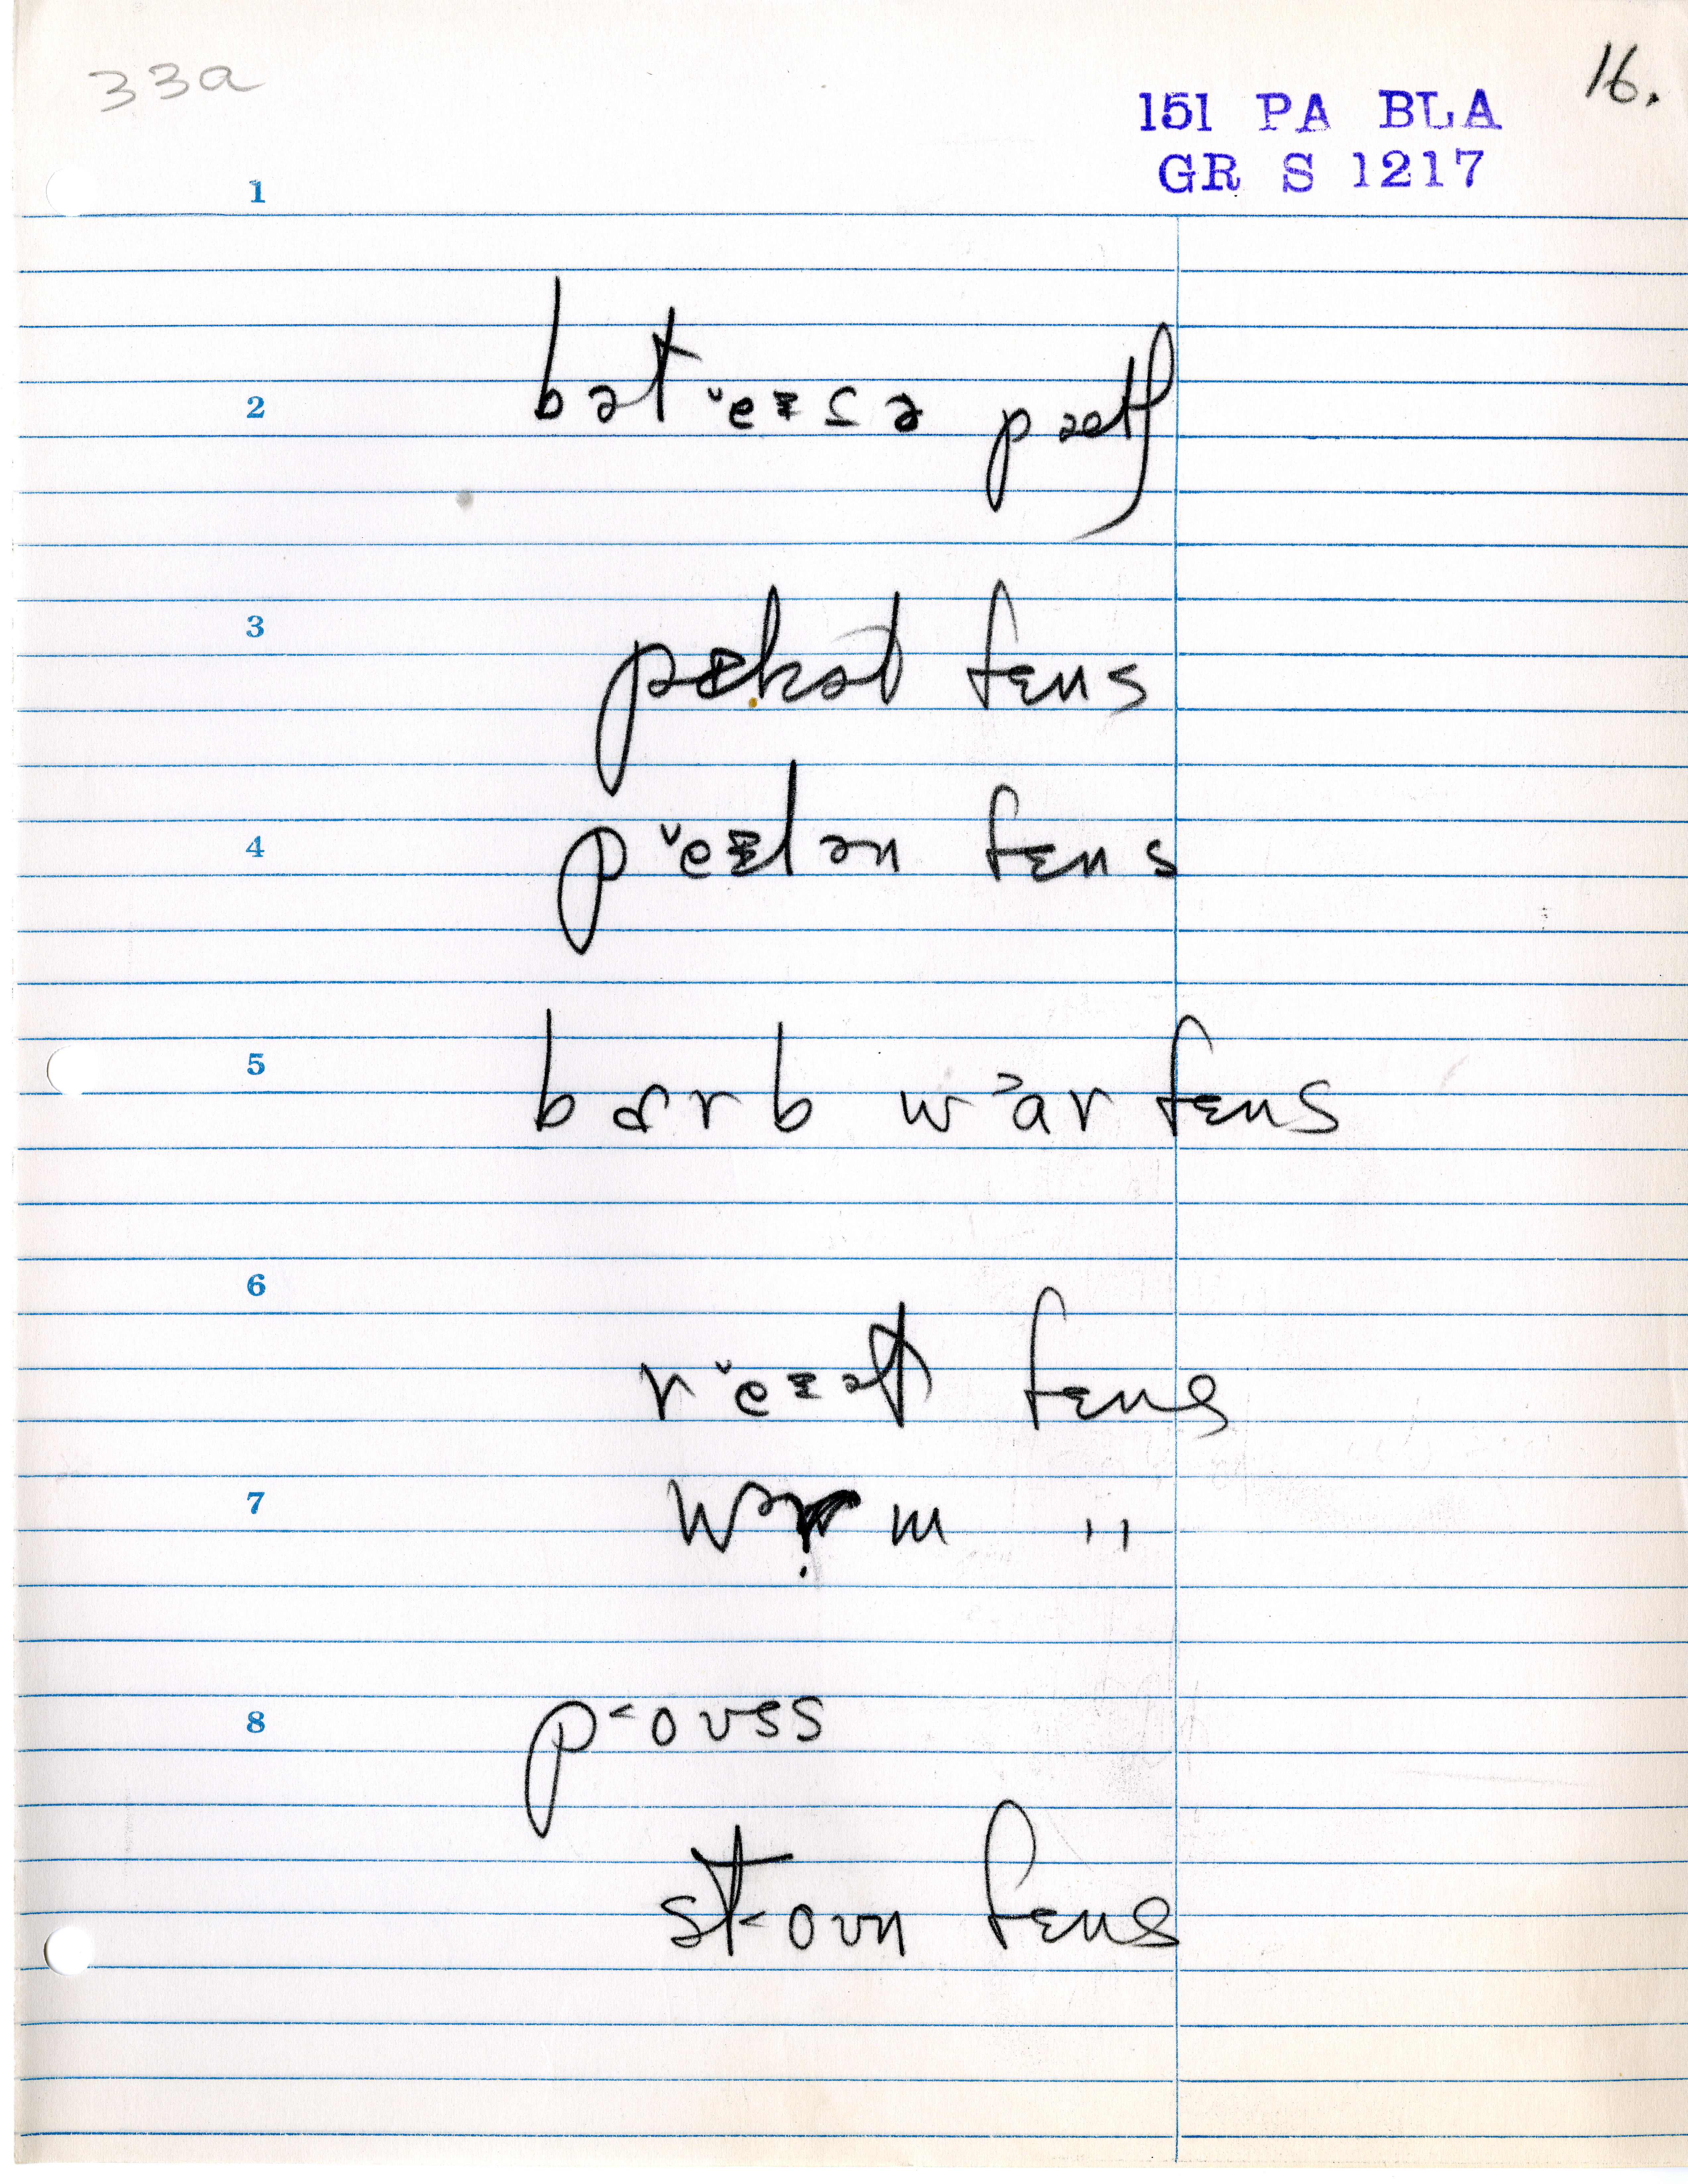 33a
16.
151 PA BLA
GR S 1217
1
2 bət ˇeᵻʃə pætʃ
3 pɪkət fɛns
4 p ˇeᵻlən fɛns
5 bɑrb w ˃ar fɛns
6 r ˇeᵻəl fɛns
7 wərm "
8 p ˂oʊss
st ˂oʊn fɛns